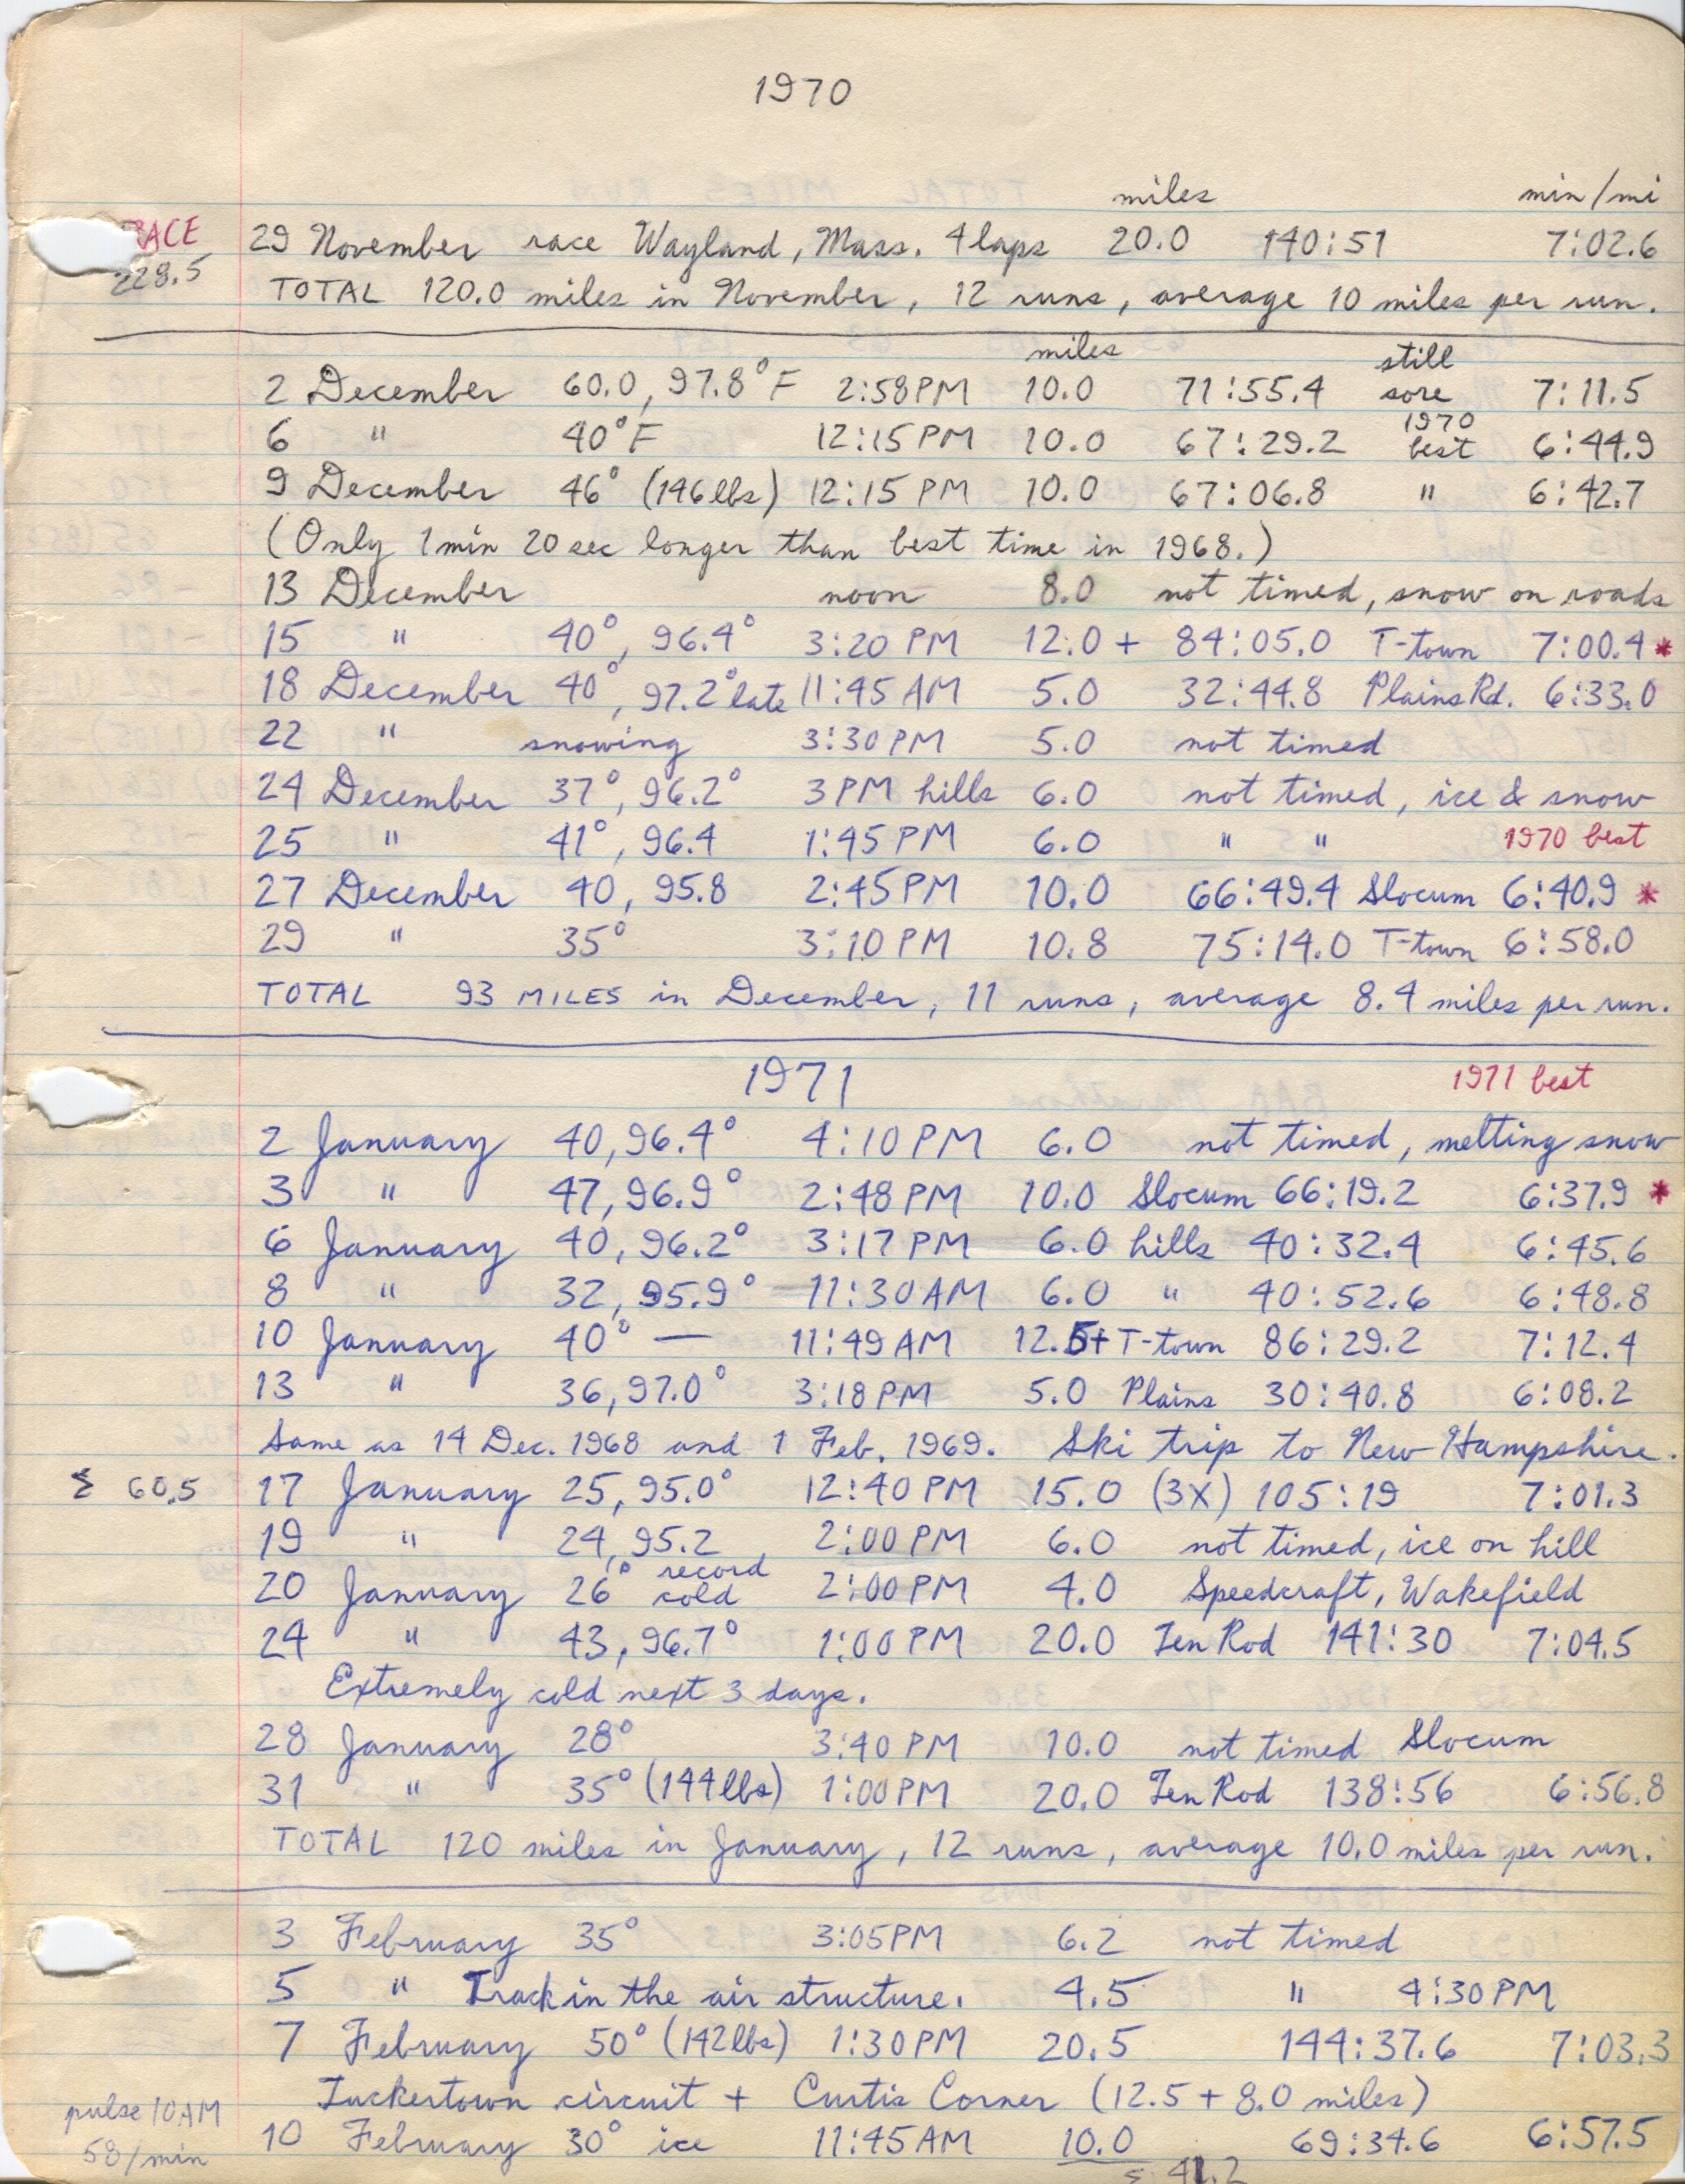 1970
miles min/mi
RACE 29 November race Wayland, Mass. 4 laps 20.0 140:51 7:02.6
228.5 TOTAL 120.0 miles in November, 12 runs, average 10 miles per run.
miles still
2 December 60.0, 97.8°F 2:58PM 10.0 71:55.4 sore 7:11.5
1970
6 " 40°F 12:15PM 10.0 67:29.2 best 6:44.9
9 December 46° (146 lbs) 12:15 PM 10.0 67:06.8 " 6:42.7
(Only 1 min 20 sec longer than best time in 1968.)
13 December noon 8.0 not timed, snow on roads
15 " 40°, 96.4° 3:20 PM 12.0 + 84:05.0 T-town 7:00.4 *
18 December 40°, 97.2° late 11:45 AM 5.0 32:44.8 Plains Rd. 6:33.0
22 " snowing 3:30 PM 5.0 not timed
24 December 37°, 96.2° 3 PM hills 6.0 not timed, ice & snow
25 " 41°, 96.4 1:45 PM 6.0 " " 1970 best
27 December 40, 95.8 2:45 PM 10.0 66:49.4 Slocum 6:40.9 *
29 " 35° 3:10 PM 10.8 75:14.0 T-town 6:58.0
TOTAL 93 MILES in December, 11 runs, average 8.4 miles per run.
1971 1971 best
2 January 40, 96.4° 4:10 PM 6.0 not timed, melting snow
3 " 47, 96.9° 2:48 PM 10.0 Slocum 66:19.2 6:37.9 *
6 January 40, 96.2° 3:17 PM 6.0 hills 40:32.4 6:45.6
8 " 32, 95.9° 11:30 AM 6.0 " 40:52.6 6:48.8
10 January 40° — 11:49 AM 12.5+ T-town 86:29.2 7:12.4
13 " 36, 97.0° 3:18 PM 5.0 Plains 30:40.8 6:08.2
Same as 14 Dec. 1968 and 1 Feb. 1969. Ski trip to New Hampshire.
Σ 60.5 17 January 25, 95.0° 12:40 PM 15.0 (3X) 105:19 7:01.3
19 " 24, 95.2 2:00 PM 6.0 not timed, ice on hill
record
20 January 26° cold 2:00 PM 4.0 Speedcraft, Wakefield
24 " 43, 96.7° 1:00 PM 20.0 Ten Rod 141:30 7:04.5
Extremely cold next 3 days.
28 January 28° 3:40 PM 10.0 not timed Slocum
31 " 35° (144 lbs) 1:00 PM 20.0 Ten Rod 138:56 6:56.8
TOTAL 120 miles in January, 12 runs, average 10.0 miles per run.
3 February 35° 3:05PM 6.2 not timed
5 " Track in the air structure. 4.5 " 4:30PM
7 February 50° (142 lbs) 1:30PM 20.5 144:37.6 7:03.3
Tuckertown circuit + Curtis Corner (12.5 + 8.0 miles)
pulse 10AM 10 February 30° ice 11:45 AM 10.0 69:34.6 6:57.5
58/min Σ 41.2